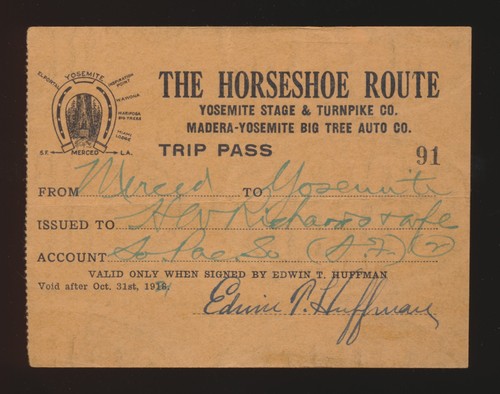 EL PORTAL
YOSEMITE
INSPIRATION POINT
WAWONA
MARIPOSA BIG TREES
MIAMI LODGE
S.F. MERCED L.A.
THE HORSESHOE ROUTE
YOSEMITE STAGE & TURNPIKE CO.
MADERA-YOSEMITE BIG TREE AUTO CO.
TRIP PASS 91
FROM Merced TO Yosemite
ISSUED TO H W Richards
ACCOUNT So. Pac. Co
VALID ONLY WHEN SIGNED BY EDWIN T. HUFFMAN
Void after Oct. 31st, 191
Edwin T. Huffman